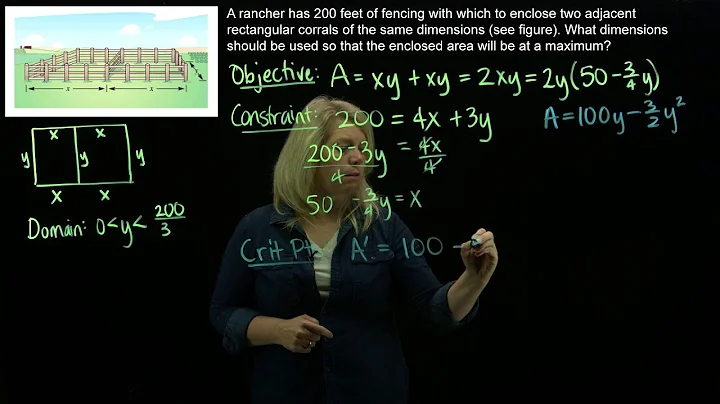 A rancher has 200 feet of fencing with which to enclose two adjacent
rectangular corrals of the same dimensions (see figure). What dimensions
should be used so that the enclosed area will be at a maximum?
x x
Objective: A = xy + xy = 2xy = 2y(50 - 3/4 y)
Constraint: 200 = 4x + 3y
A = 100y - 3/2 y²
x x
y y y
x x
200 - 3y / 4 = 4x / 4
50 - 3/4 y = x
Domain: 0 < y < 200/3
Crit Pts A' = 100 -